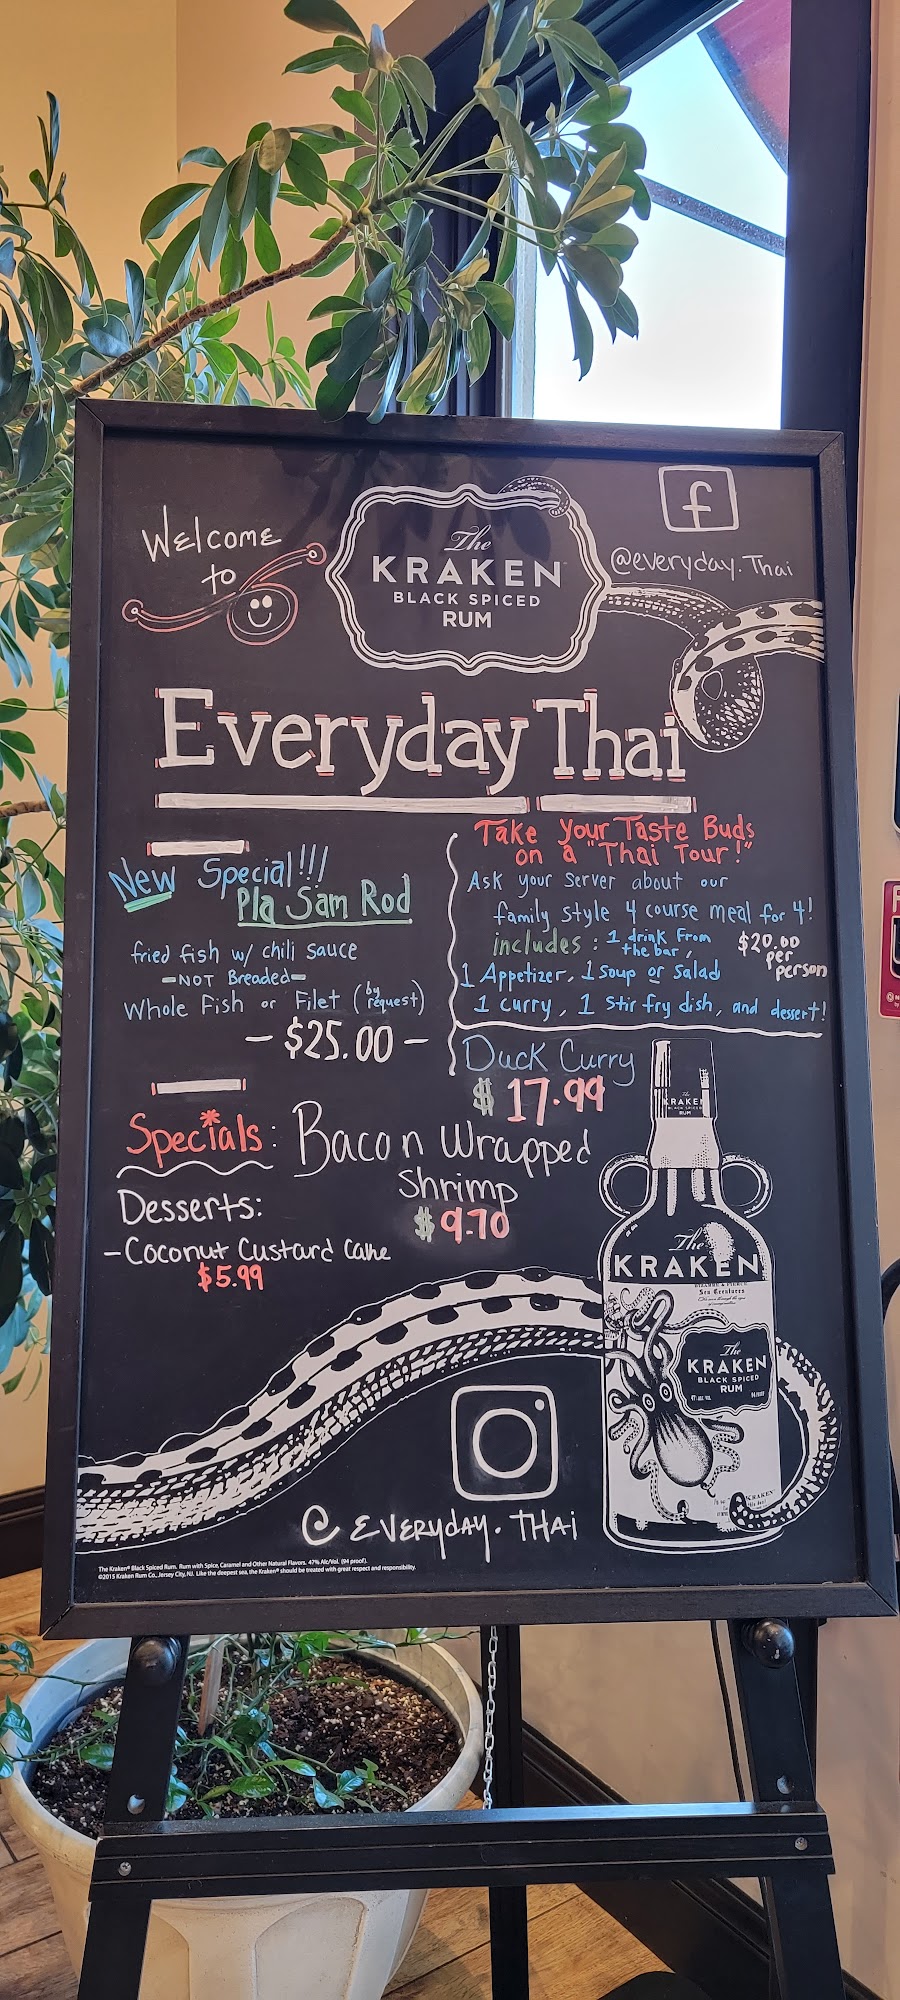 Welcome
to
The
KRAKEN
BLACK SPICED
RUM
f
@everyday.Thai
Everyday Thai
New Special!!!
Pla Sam Rod
fried fish w/ chili sauce
-NOT Breaded-
Whole Fish or Filet (by request)
- $25.00 -
Take Your Taste Buds
on a "Thai Tour!"
Ask your server about our
family style 4 course meal for 4!
includes: 1 drink from
the bar,
$20.00
per
person
1 Appetizer, 1 soup or salad
1 curry, 1 stir fry dish, and dessert!
Duck Curry
$17.99
Specials: Bacon Wrapped
Shrimp
$9.70
Desserts:
-Coconut Custard Cake
$5.99
The
KRAKEN
BLACK SPICED
RUM
The
KRAKEN
Sea Creatures
The
KRAKEN
BLACK SPICED
RUM
@EVERYDAY.THAi
The Kraken® Black Spiced Rum. Rum with Spice, Caramel and Other Natural Flavors. 47% Alc/Vol. (94 proof).
©2015 Kraken Rum Co., Jersey City, NJ. Like the deepest sea, the Kraken® should be treated with great respect and responsibility.